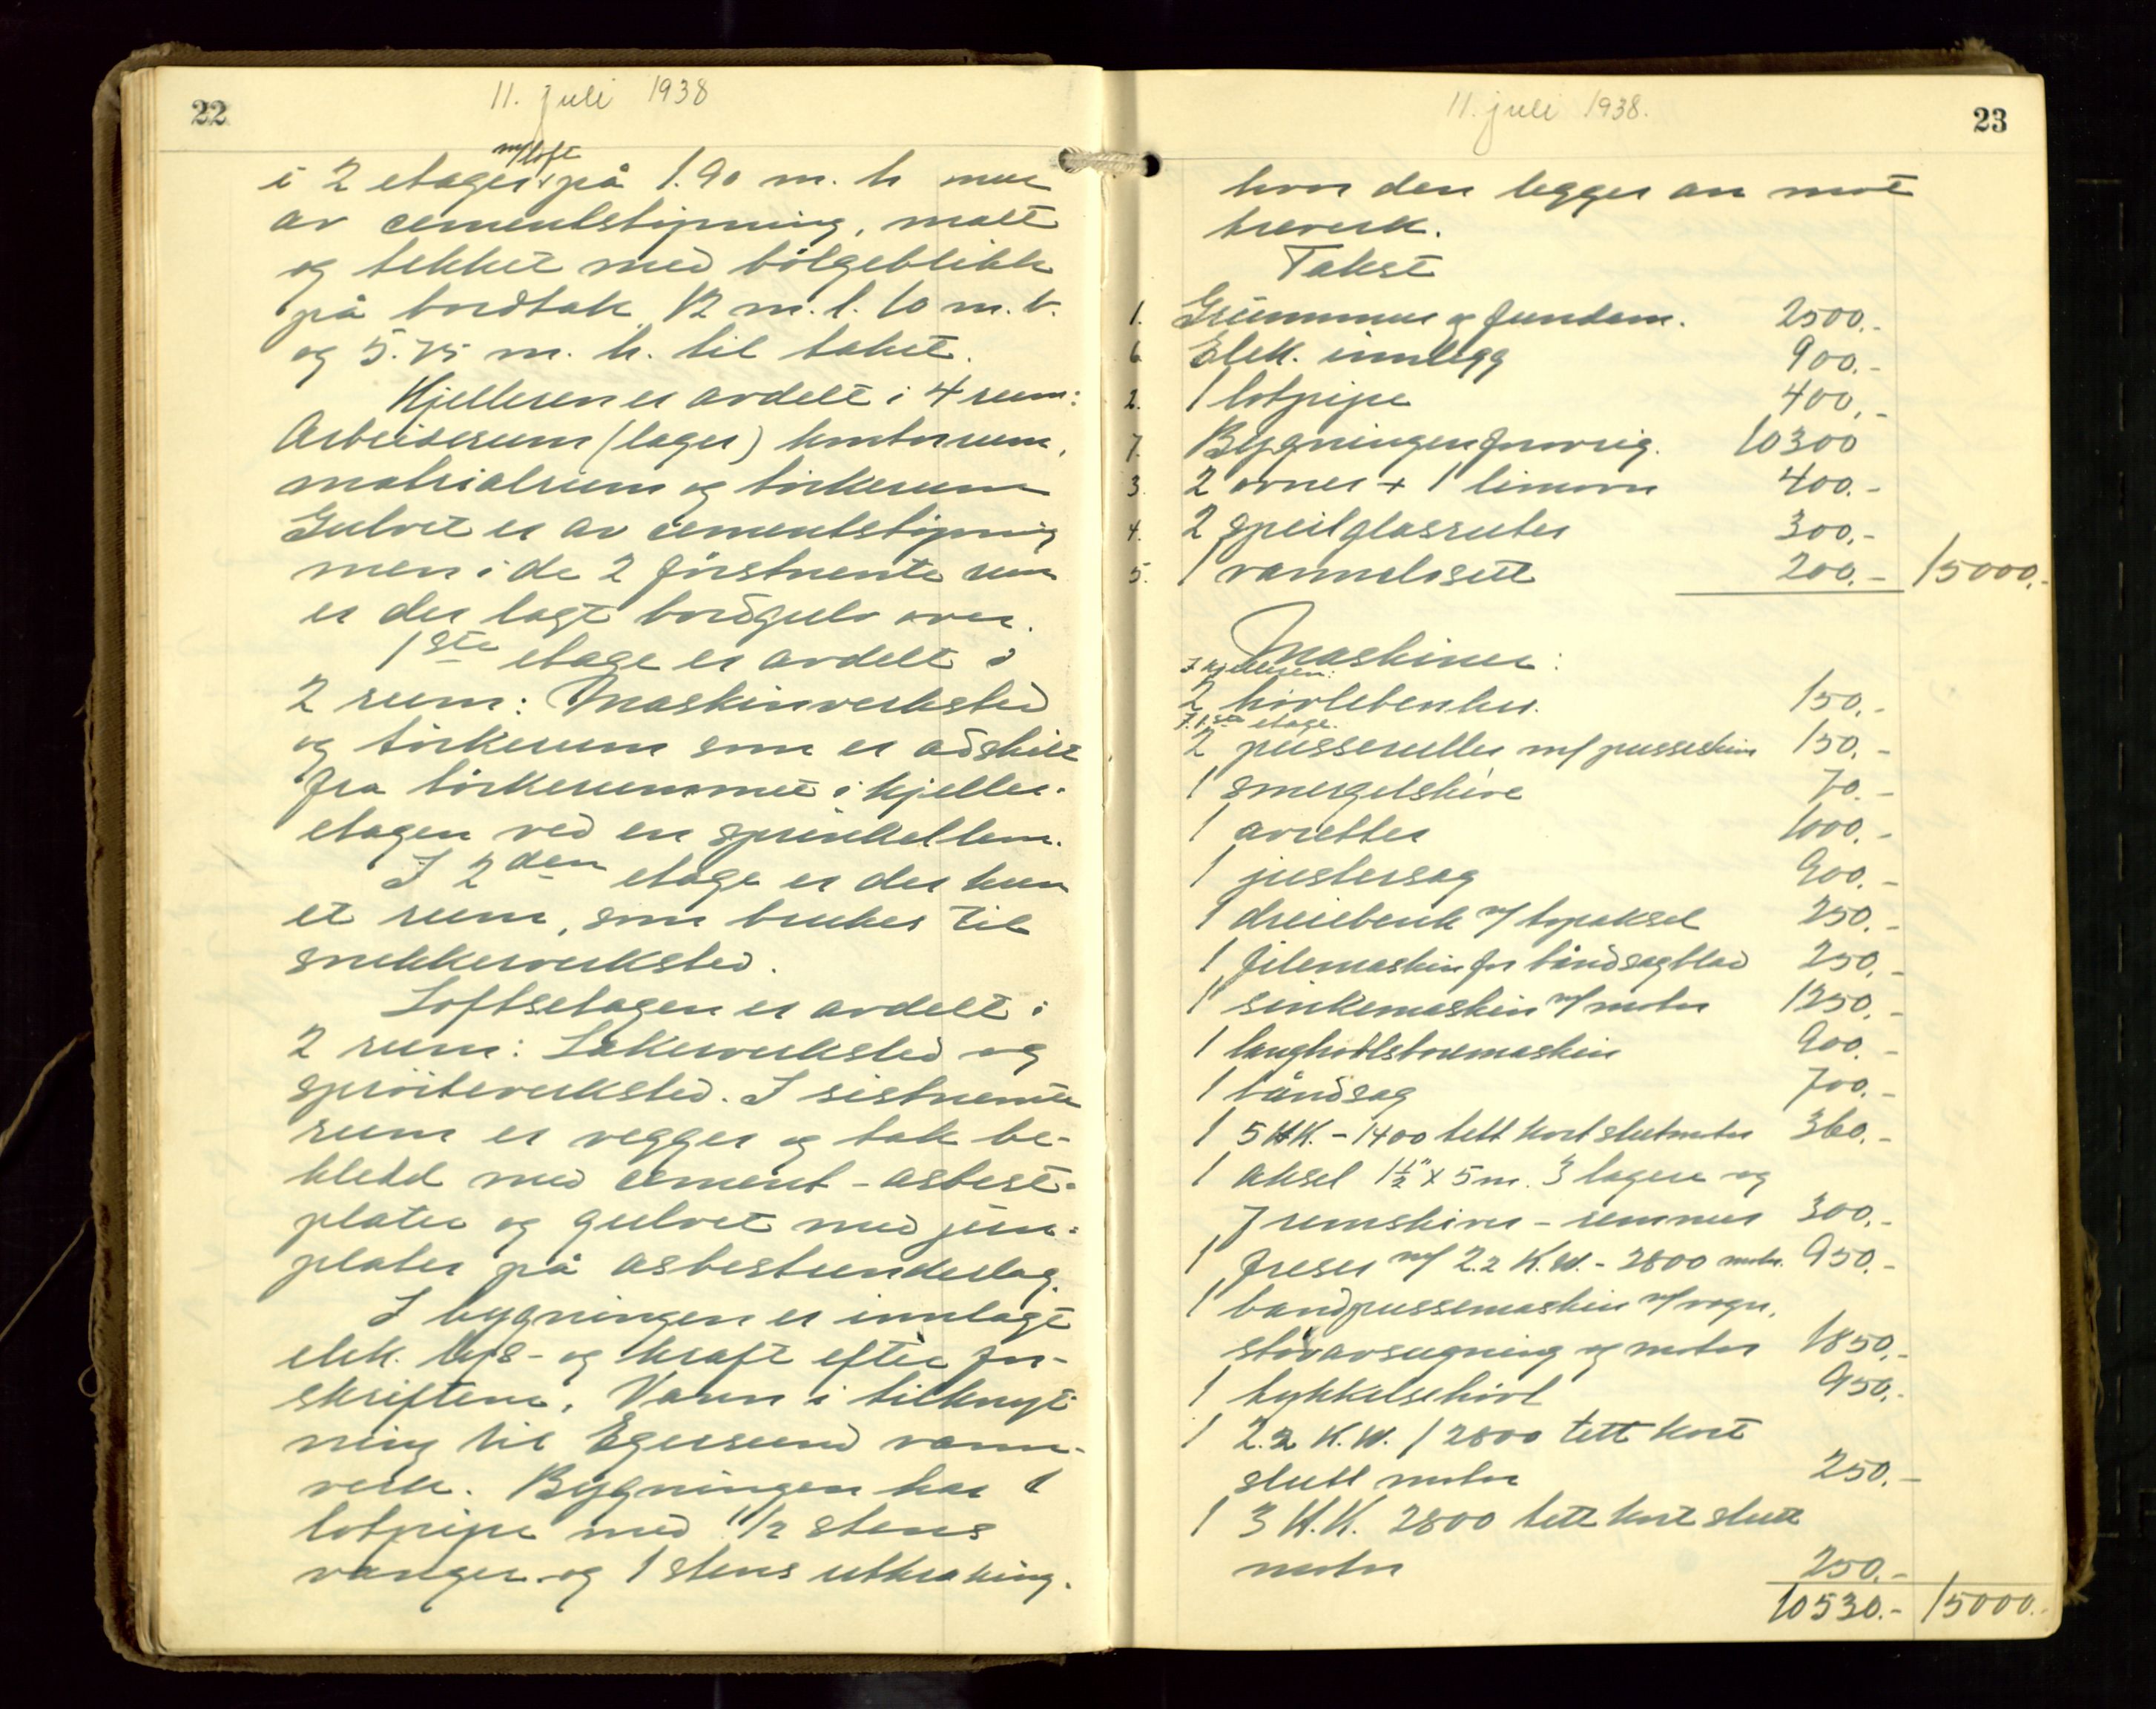 22
11. juli 1938
m/loft
i 2 etager på 1.90 m. h mur
av cementstøpning, malt
og tekket med bølgeblikk
på bordtak. 12 m. l. 10 m. b.
og 5.75 m. h. til taket.
Kjelleren er avdelt i 4 rum:
Arbeidsrum (lager) kontorrum,
matrialrum og tørkerum
Gulvet er av cementstøpning
men i de 2 førstnevnte rum
er der lagt bordgulv over.
1ste etage er avdelt i
2 rum: Maskinverksted
og tørkerum som er adskilt
fra tørkerummet i kjeller-
etagen ved en sprinkellem.
I 2den etage er der kun
et rum, som brukes til
snekkerverksted.
Loftsetagen er avdelt i
2 rum: Lakerverksted og
sprøiteverksted. I sistnevnte
rum er vegger og tak be-
kledd med cement-asbest-
plater og gulvet med jern-
plater på asbestunderlag.
I bygningen er innlagt
elek. lys- og kraft efter for-
skriftene. Vann i tilknyt-
ning til Egersund vann-
verk. Bygningen har 1
lotpipe med 1/2 stens
vanger og 1 stens utkraking.
23
11. juli 1938.
hvor den legger an mot
treverk.
Takst
1. Grunnmur og fundam. 2500.-
6. Elek. innlegg 900.-
2. 1 lotpipe 400.-
7. Bygningen forøvrig. 10300
3. 2 ovner + 1 limovn 400.-
4. 2 speilglassruter 300.-
5. 1 vannklosett 200.- 15000.-
Maskiner:
I kjelleren:
2 høvlebenker. 150.-
I 1ste etage.
2 pusseruller m/ pusseskive 150.-
1 smergelskive 70.-
1 avretter 1000.-
1 justersag 900.-
1 dreiebenk m/ topaksel 250.-
1 filemaskin for båndsagblad 250.-
1 sinkemaskin m/ motor 1250.-
1 langhullsboremaskin 900.-
1 båndsag 700.-
1 5 HK. - 1400 tett kortslutmotor 360.-
1 aksel 1 1/2" x 5 m. 3 lagere og
7 remskiver - remmer 300.-
1 freser m/ 2.2 K.W. - 2800 motor. 950.-
1 bandpussemaskin m/ vogn,
støvavsugning og motor 1850.-
1 tykkelsehøvl 950.-
1 2.2 K.W. / 2800 tett kort
slutt motor 250.-
1 3 H.K. 2800 tett kort slutt
motor 250.-
10530.- 15000.-